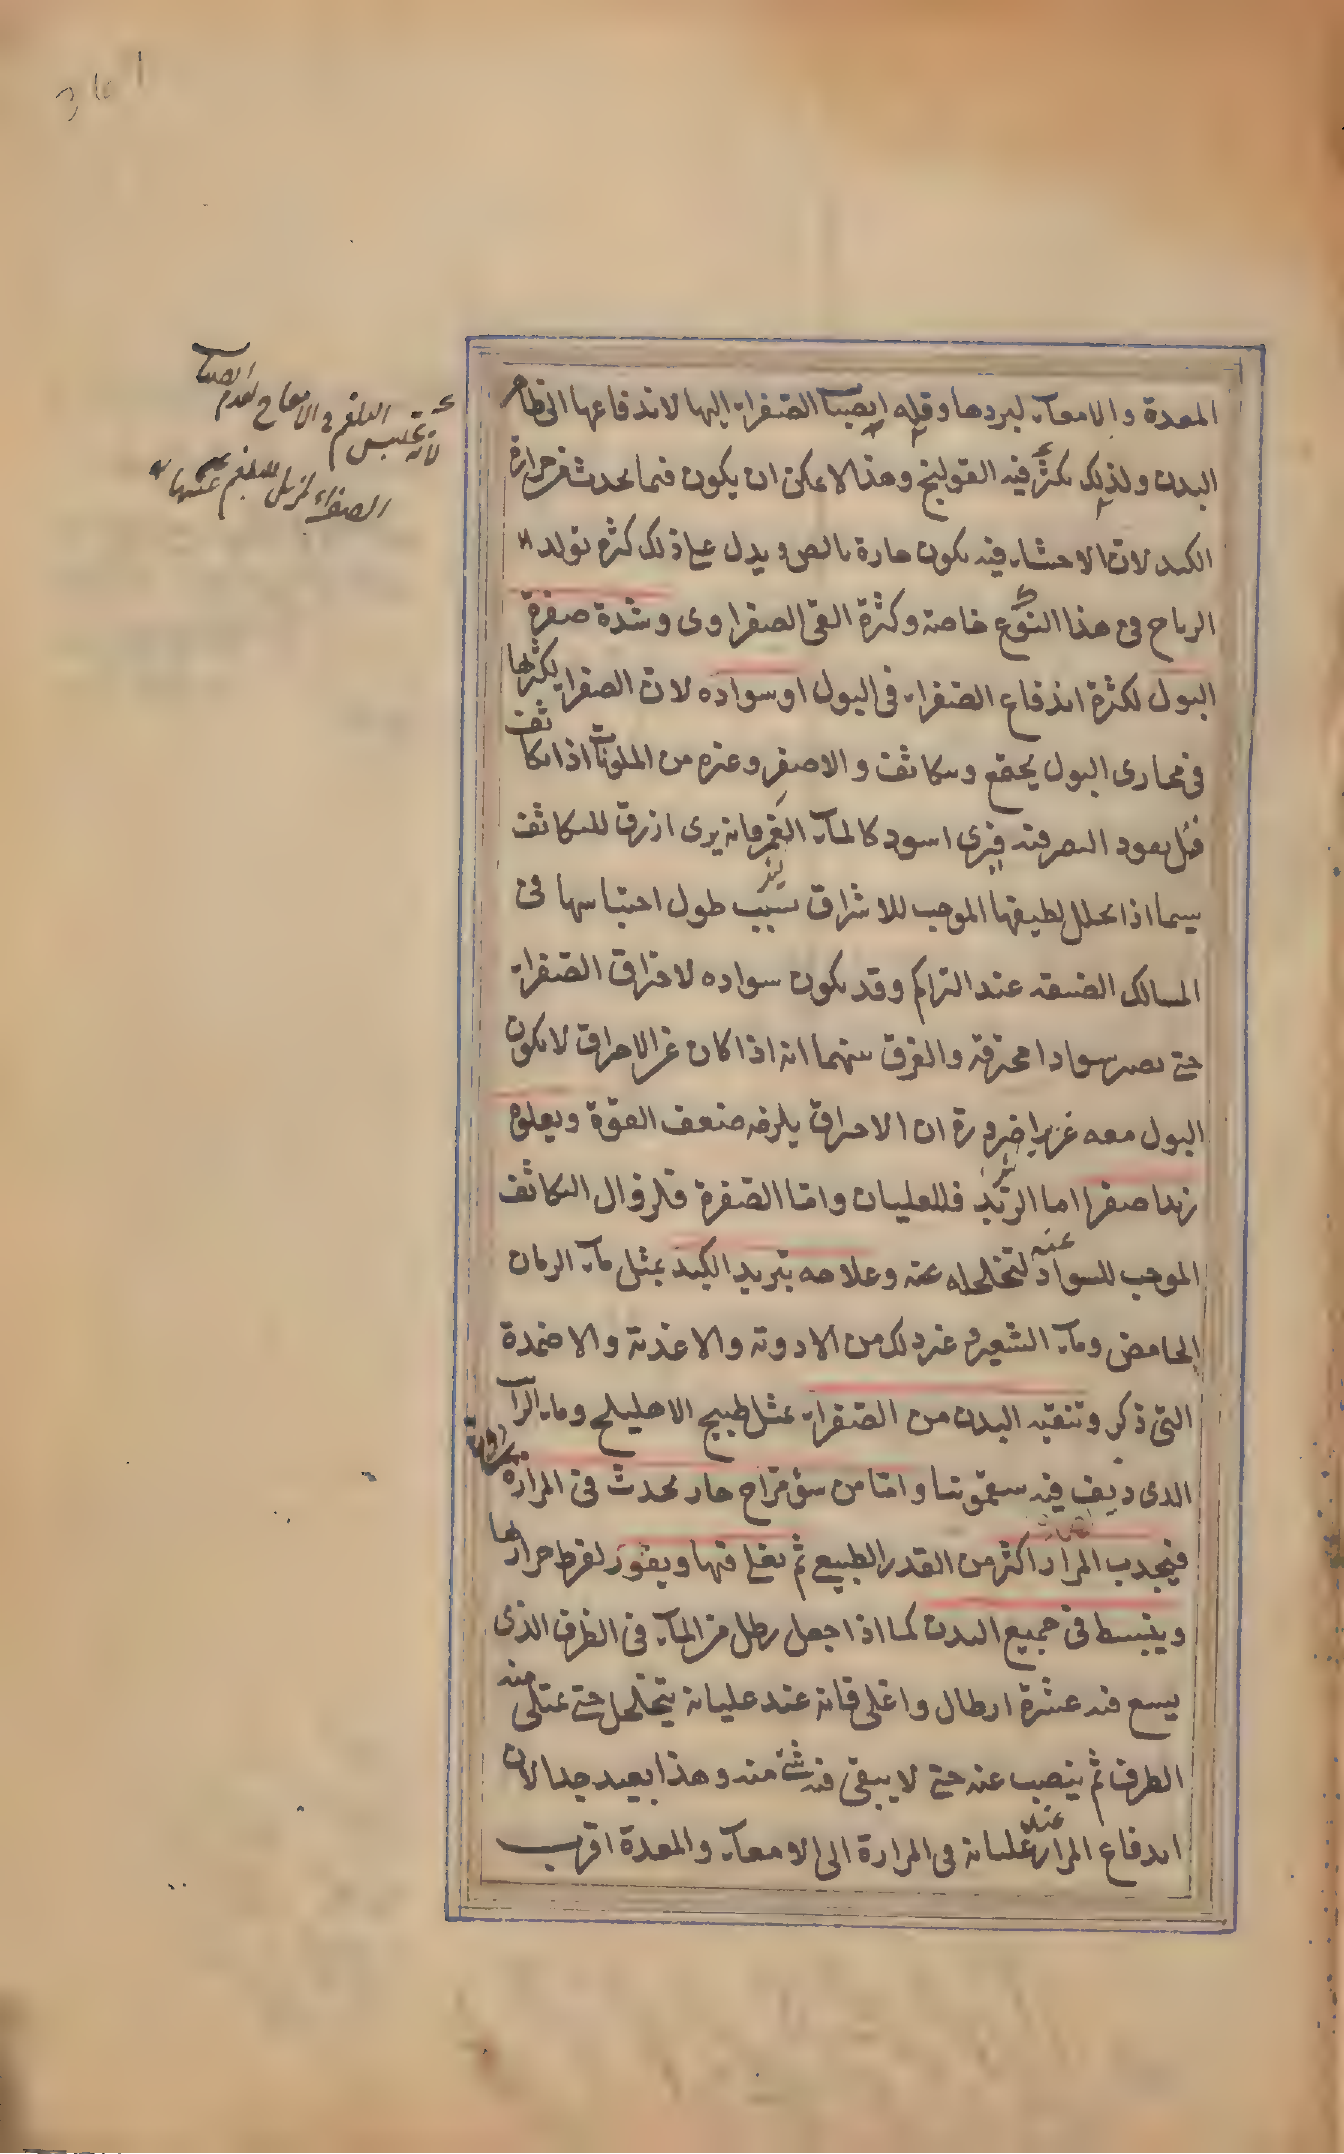 المعدة والامعاء لبردها وقله انصباب الصفراء اليها لاندفاعها الى ظاهر
البدن ولذلك يكثر فيه القولنج وهذا لا يمكن ان يكون فيما يحدث من حرارة
الكبد لان الاحشاء فيه يكون حارة يابس ويدل على ذلك كثره تولد
الرياح في هذا النوع خاصة وكثرة القي الصفراوى وشدة صفرة
البول لكثرة اندفاع الصفراء فى البول او سواده لان الصفراء لكثرتها
فى مجارى البول يجتمع ويتكاثف والاصفر وغيره من الملونات اذا تكاثف
قبل نفود البصر فيه فيرى اسود كالماء الغمر فانه يرى ازرق للتكاثف
سيما اذا تحلل لطيفها الموجب للاشراق بسبب طول احتباسها فى
المسالك الضيقه عند التراكم وقد يكون سواده لاحتراق الصفراء
حتى يصير سوادا محترقة والفرق بينهما انه اذا كان عن الاحراق لا يكون
البول معه غزيرا ضرورة ان الاحراق يلزمه ضعف القوة ويعلوه
زبدا صفرا اما الزبد فللغليان واما الصفرة فلزوال التكاثف
الموجب للسواد عنه لتخلخله عنه وعلاجه تبريد الكبد بمثل ماء الرمان
الحامض وماء الشعير وغير ذلك من الادوية والاغذية والاضمدة
التى ذكر وتنقيه البدن من الصفراء بمثل طبيخ الاهليلج وماء الرا
الذى ديف فيه سقمونيا واما من سؤ مزاج حار يحدث فى المرارة
فيجذب المرار اكثر من القدر الطبيعى ثم يغلى فيها ويفور لفرط حرارتها
وينبسط فى جميع البدن كما اذا جعل رطل من الماء فى الظرف الذى
يسع فيه عشرة ارطال واغلى فانه عند غليانه يتخلخل حتى يمتلى منه
الظرف ثم ينصب عنه حتى لا يبقى فيه شئ منه وهذا بعيد جدا لان
اندفاع المرار عند غليانه فى المرارة الى الامعاء والمعدة اقرب
لانه يحتبس البلغم فى الامعاء لعدم انصباب
الصفراء المزيل للبلغم عنها